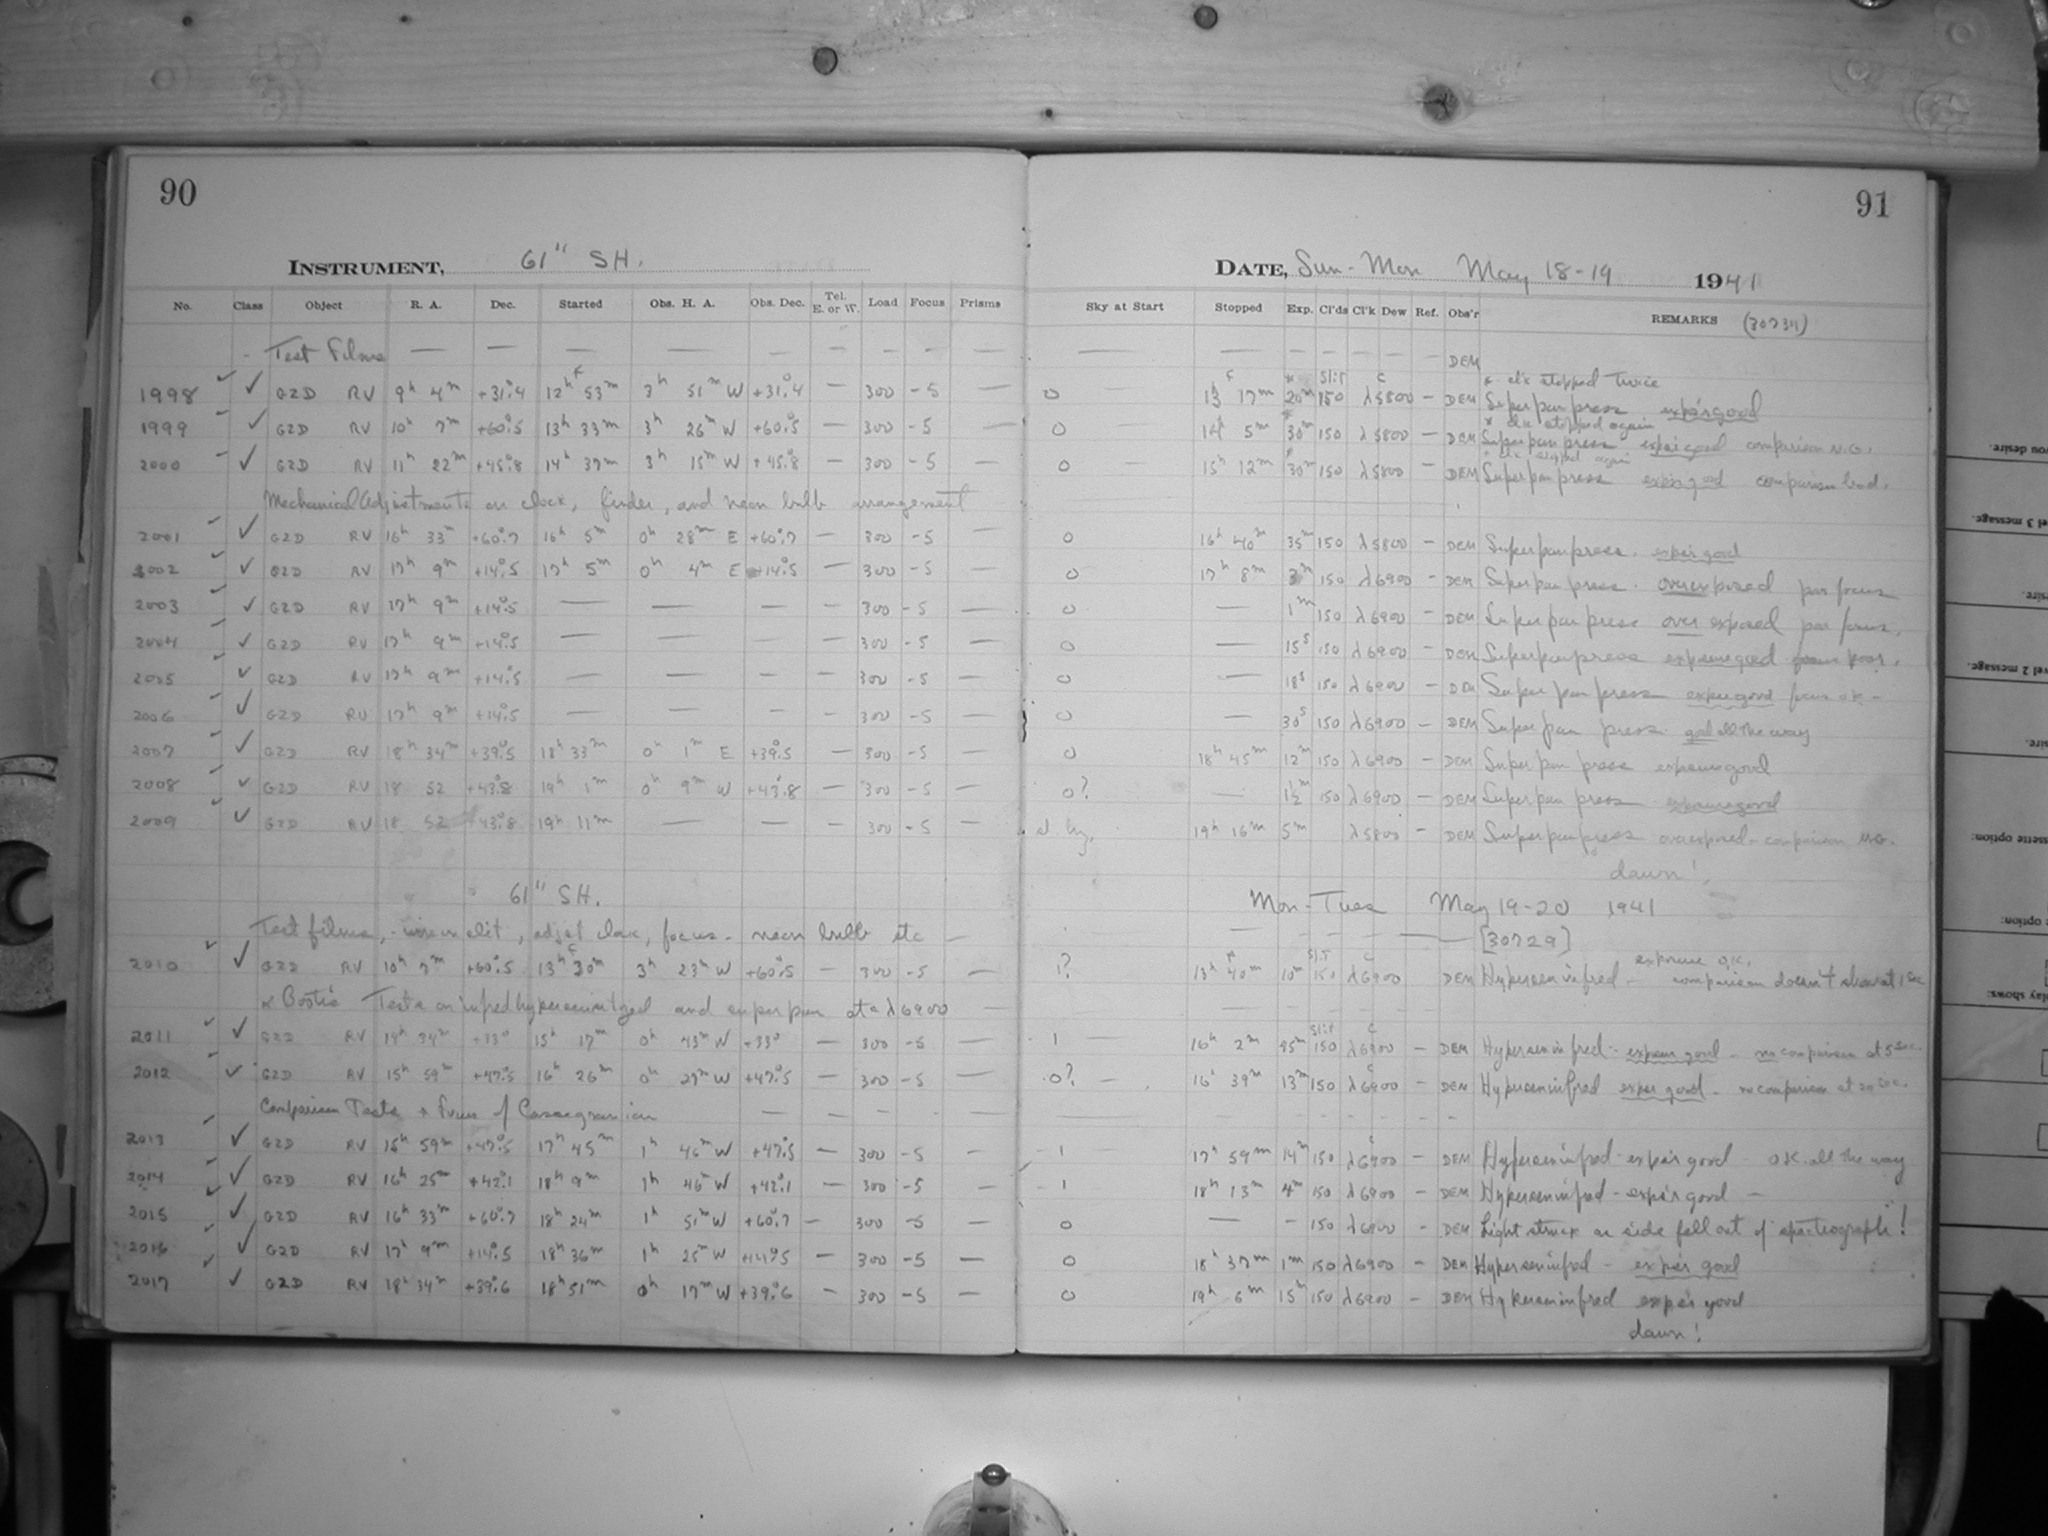 90
91
INSTRUMENT, 61" SH.
DATE, Sun - Mon May 18-19 1941
No. Class Object R. A. Dec. Started Obs. H. A. Obs. Dec. Tel. E. or W. Load Focus Prisms Sky at Start Stopped Exp. Cl'ds Cl'k Dew Ref. Obs'r REMARKS (30734)
- Test Films — — — — — — — — — — — — — — DEM
* clk stopped twice
1998 ✓ G2D RV 9h 4m +31°.4 12h 53m 3h 51m W +31°.4 — 300 -5 — 0 13 17m 20m 150 λ5800 - DEM Super pan press exp's good
* clk stopped again
1999 ✓ G2D RV 10h 7m +60°.5 13h 33m 3h 26m W +60°.5 — 300 -5 — 0 — 14h 5m 30m 150 λ5800 — DEM Super pan press exp's good comparison N.G.
* clk stopped again
2000 ✓ G2D RV 11h 22m +45°.8 14h 37m 3h 15m W +45°.8 — 300 -5 — 0 — 15h 12m 30m 150 λ5800 — DEM Super pan press exp's good comparison bad.
Mechanical Adjustments on clock, finder, and neon bulb arrangement
2001 ✓ G2D RV 16h 33m +60°.7 16h 5m 0h 28m E +60°.7 — 300 -5 — 0 16h 40m 35m 150 λ5800 - DEM Super pan press. exp's good
2002 ✓ G2D RV 17h 9m +14°.5 17h 5m 0h 4m E +14°.5 — 300 -5 — 0 17h 8m 3m 150 λ6900 - DEM Super pan press. overexposed poor focus
2003 ✓ G2D RV 17h 9m +14°.5 — — — — 300 -5 — 0 — 1m 150 λ6900 - DEM Super pan press over exposed poor focus.
2004 ✓ G2D RV 17h 9m +14°.5 — — — — 300 -5 — 0 — 15s 150 λ6900 - DEM Super pan press exposure good focus poor.
2005 ✓ G2D RV 17h 9m +14°.5 — — — — 300 -5 — 0 — 18s 150 λ6900 - DEM Super pan press expos good focus OK -
2006 ✓ G2D RV 17h 9m +14°.5 — — — — 300 -5 — 0 — 30s 150 λ6900 - DEM Super pan press. good all the way
2007 ✓ G2D RV 18h 34m +39°.5 18h 33m 0h 1m E +39°.5 — 300 -5 — 0 18h 45m 12m 150 λ6900 - DEM Super pan press exposure good
2008 ✓ G2D RV 18 52 +43°.8 19h 1m 0h 9m W +43°.8 — 300 -5 — 0? — 1½m 150 λ6900 - DEM Super pan press. exposure good
2009 ✓ G2D RV 18 52 +43°.8 19h 11m — — — 300 -5 — 19h 16m 5m λ5800 - DEM Super pan press overexposed - comparison N.G.
dawn!
61" SH.
Mon - Tues May 19-20 1941
Test films, - slit, adjst clock, focus - neon bulb etc — [30729]
2010 ✓ G2D RV 10h 7m +60°.5 13h 30m 3h 23m W +60°.5 — 300 -5 — 1? 13h 40m 10m 150 λ6900 DEM Hypersen infred - exposure O.K. comparison doesn't show at 1 sec
Tests on infred hypersensitized and super pan at λ6900
2011 ✓ G2D RV 14h 34m +33° 15h 17m 0h 43m W +33° — 300 -5 — 1 16h 2m 45m 150 λ6900 - DEM Hypersen infred - expos good - no comparison at 5 sec.
2012 ✓ G2D RV 15h 59m +47°.5 16h 26m 0h 27m W +47°.5 — 300 -5 — 0? — 16h 39m 13m 150 λ6900 - DEM Hypersen infred expos good - no comparison at 20 sec.
Comparison Tests & Focus of Cassegranian
2013 ✓ G2D RV 15h 59m +47°.5 17h 45m 1h 46m W +47°.5 — 300 -5 — 1 17h 59m 14m 150 λ6900 - DEM Hypersen infred - exp's good OK all the way
2014 ✓ G2D RV 16h 25m +42°.1 18h 9m 1h 46m W +42°.1 — 300 -5 — 1 18h 13m 4m 150 λ6900 - DEM Hypersen infred - exp's good —
2015 ✓ G2D RV 16h 33m +60°.7 18h 24m 1h 51m W +60°.7 — 300 -5 — 0 — - 150 λ6900 - DEM Light struck as side fell out of spectrograph!
2016 ✓ G2D RV 17h 9m +14°.5 18h 36m 1h 25m W +14°.5 — 300 -5 — 0 18h 37m 1m 150 λ6900 - DEM Hypersen infred - exp's good
2017 ✓ G2D RV 18h 34m +39°.6 18h 51m 0h 17m W +39°.6 — 300 -5 — 0 19h 6m 15m 150 λ6900 - DEM Hypersen infred exp's good
dawn!